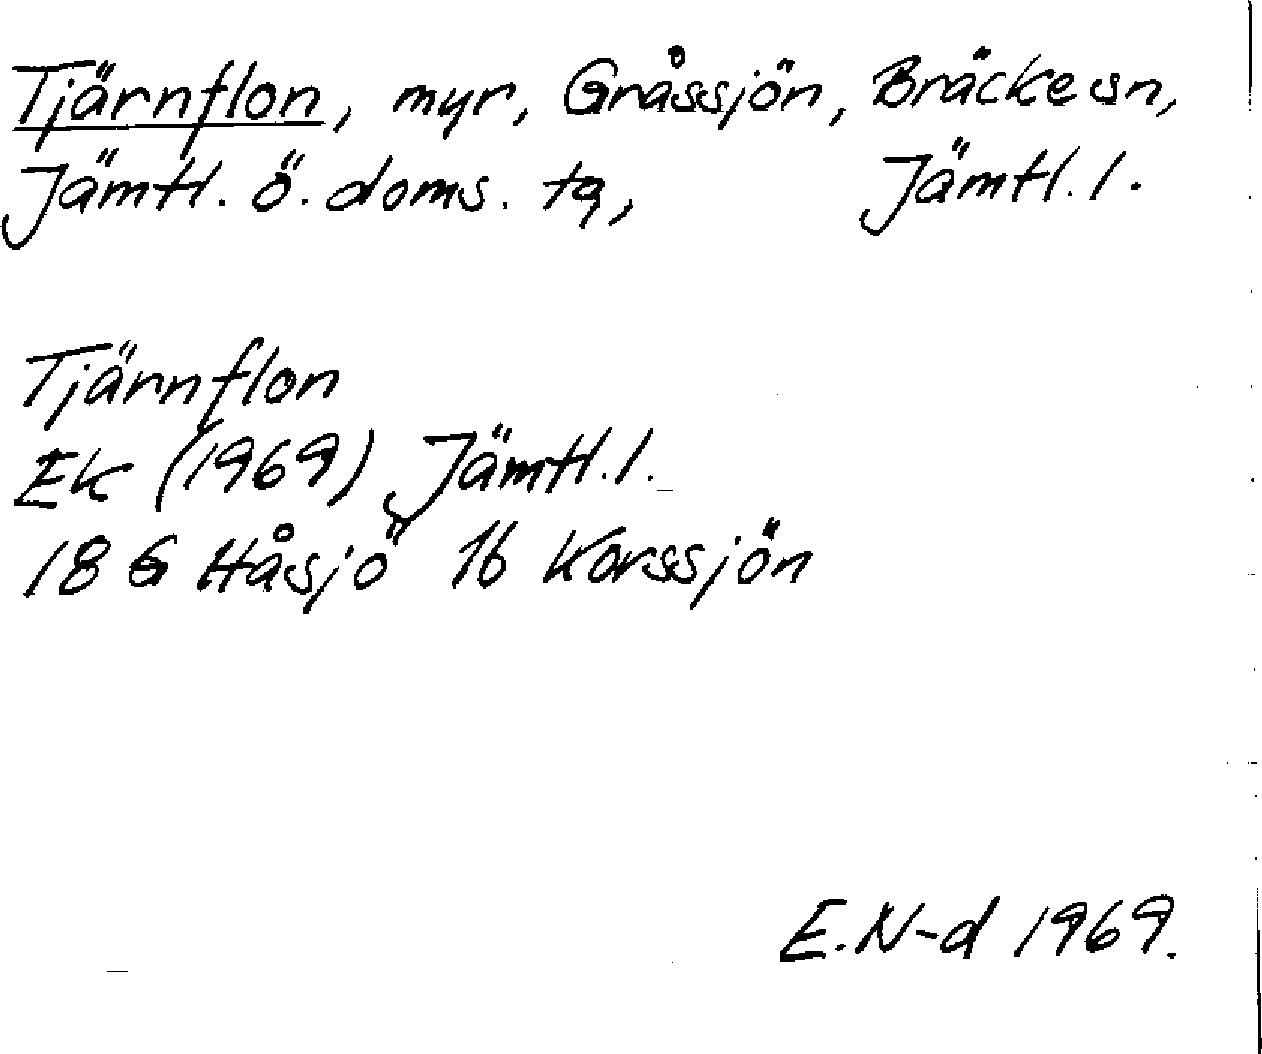 Tjärnflon, myr, Gråssjön, Bräcke sn,
Jämtl. ö. doms. tg, Jämtl. l.
Tjärnflon
Ek (1969) Jämtl. l.
18 G Håsjö 1b Korssjön
E. N-d 1969.